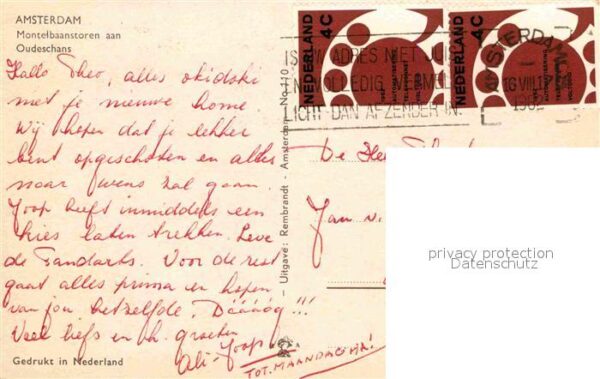 AMSTERDAM
Montelbaanstoren aan
Oudeschans
Hallo Theo, alles okidski
met je nieuwe home
Wij hopen dat je lekker
bent opgeschoten en alles
naar wens zal gaan.
Joop heeft inmiddels een
kies laten trekken. Leve
de Tandarts. Voor de rest
gaat alles prima en hopen
van jou hetzelfde. Dáááág!!!
Veel liefs en h. groeten
Ali - Joop
TOT. MAANDAG HÈ!
Gedrukt in Nederland
Uitgave: Rembrandt - Amsterdam - No 110
NEDERLAND 4C
NEDERLAND 4C
IS UW ADRES NIET JUIST
VOLLEDIG
LICHT DAN AFZENDER IN.
AMSTERDAM
16 VIII
De Heer
Jan v.
privacy protection
Datenschutz